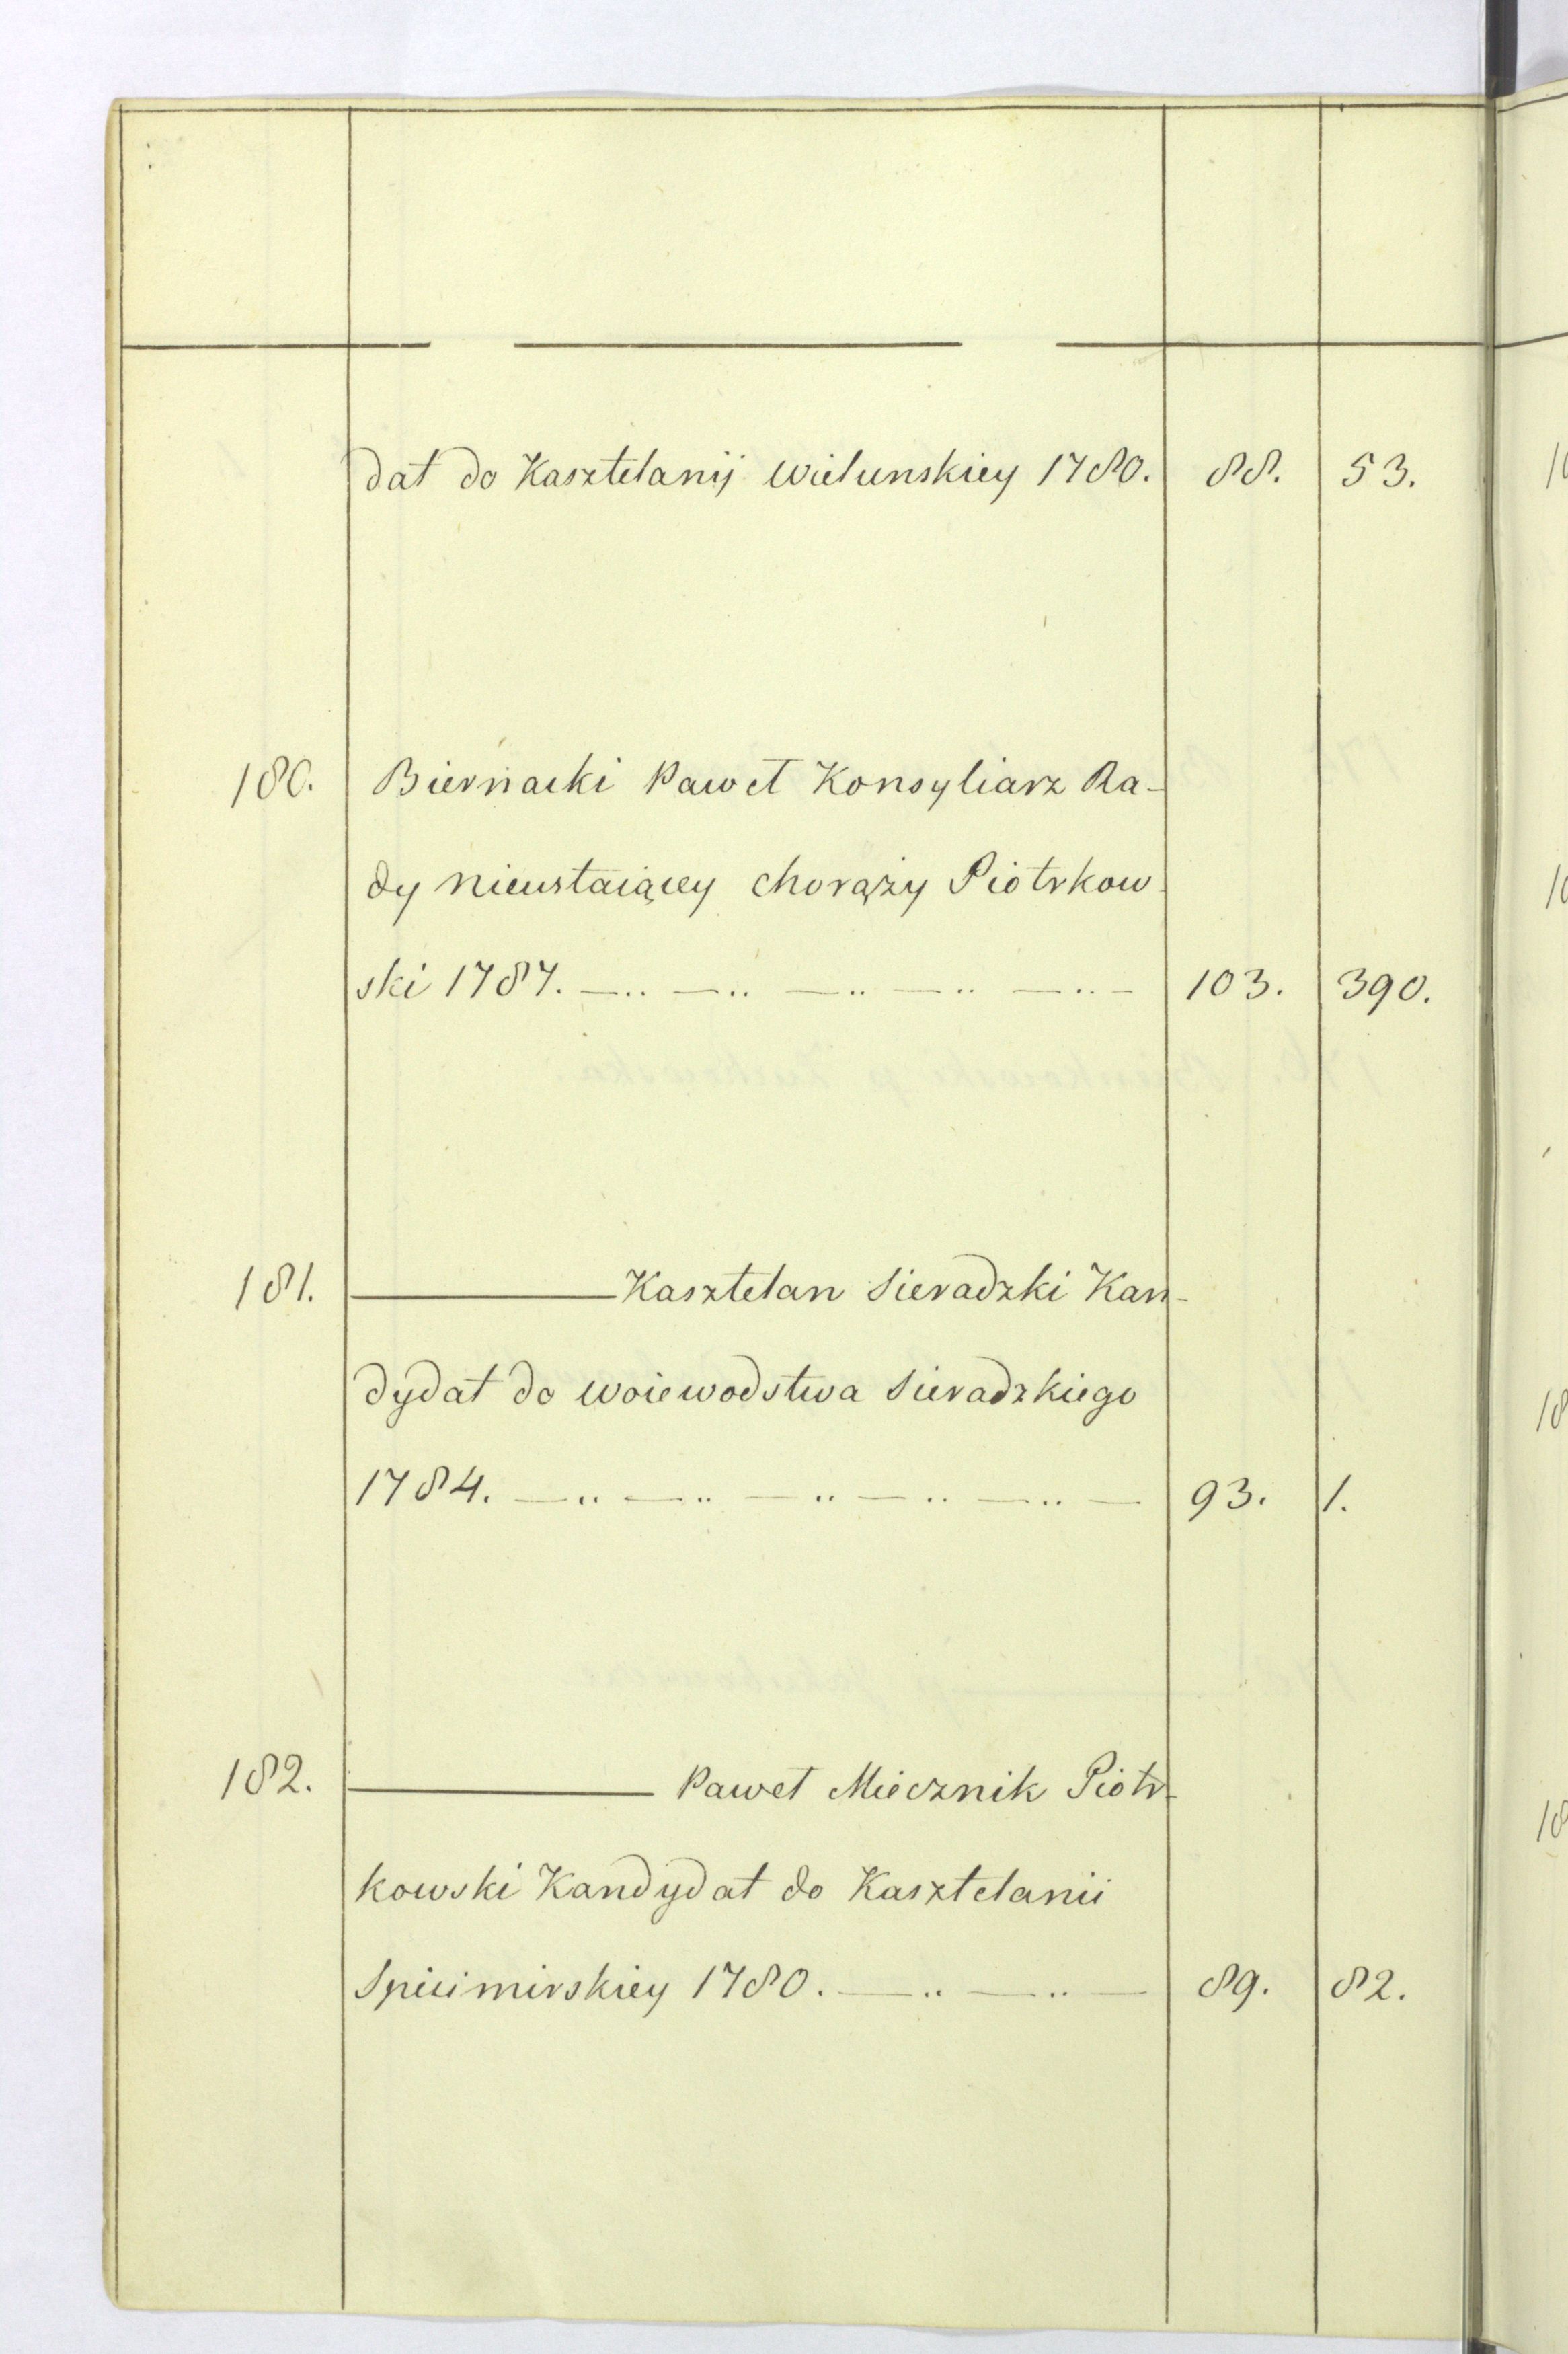 dat do Kasztelanij Wielunskiey 1780. 88. 53.
180. Biernacki Paweł Konsyliarz Ra-
dy nieustaiącey chorąży Piotrkow-
ski 1787. —..—..—..—..—..— 103. 390.
181. ——— Kasztelan Sieradzki Kan-
dydat do woiewodstwa Sieradzkiego
1784. —..—..—..—..—..— 93. 1.
182. ——— Paweł Miecznik Piotr-
kowski Kandydat do Kasztelanii
Spicimirskiey 1780. —..—..— 89. 82.